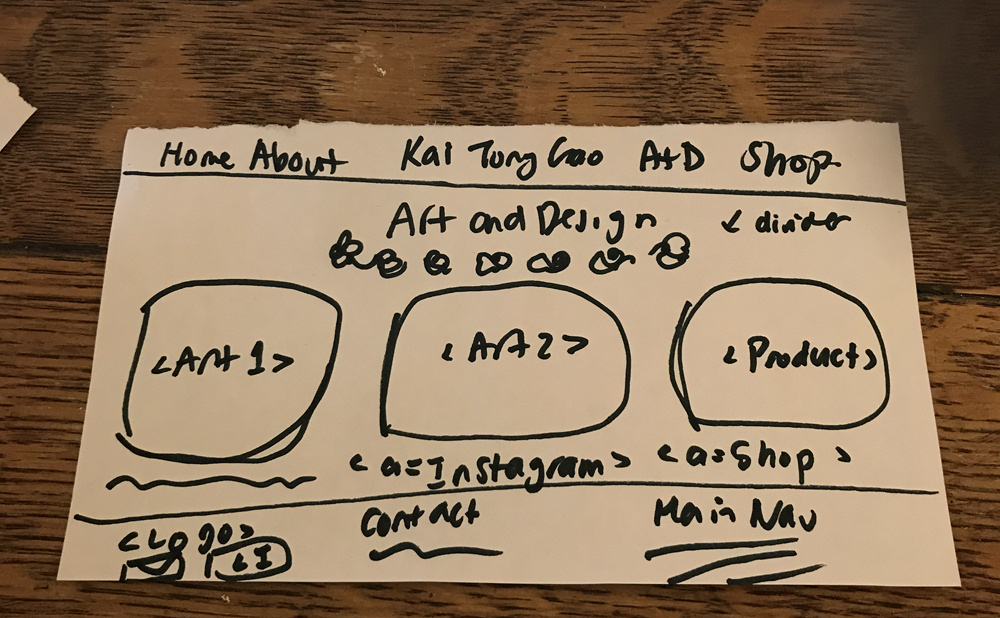 Home About Kai Tung Gao A+D Shop
Art and Design < divider
<Art 1> <Art 2> <Product>
<a=Instagram> <a=Shop>
<Logo> Contact Main Nav